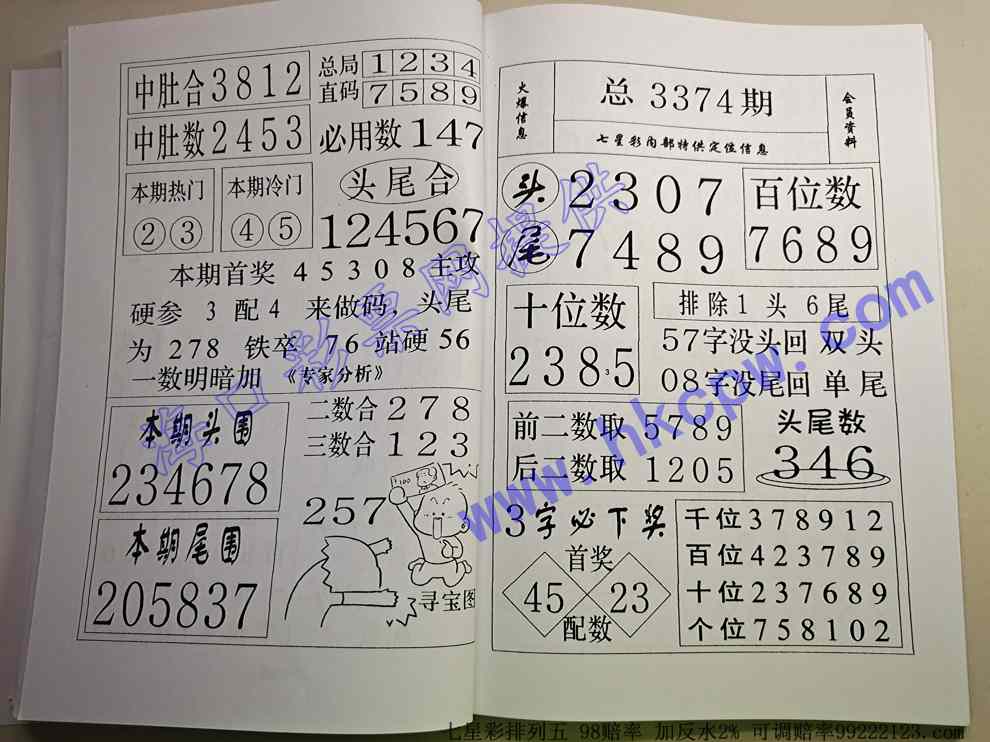 中肚合3812
中肚数2453
总局 1 2 3 4
直码 7 5 8 9
必用数147
本期热门
②③
本期冷门
④⑤
头尾合
124567
本期首奖 45308主攻
硬参 3 配4 来做码,头尾
为 278 铁卒 76 站硬 56
一数明暗加 《专家分析》
本期头围
234678
本期尾围
205837
二数合278
三数合123
257
100
寻宝图
火爆信息
总 3374期
七星彩内部特供定位信息
会员资料
头 2307
尾 7489
百位数
7689
十位数
2385
3
排除1 头 6尾
57字没头回 双 头
08字没尾回 单 尾
前二数取 5789
后二数取 1205
头尾数
346
3字必下奖
首奖
45 23
配数
千位378912
百位423789
十位237689
个位758102
海口彩票网提供
www.hkcpw.com
七星彩排列五 98赔率 加反水2% 可调赔率99222123.com